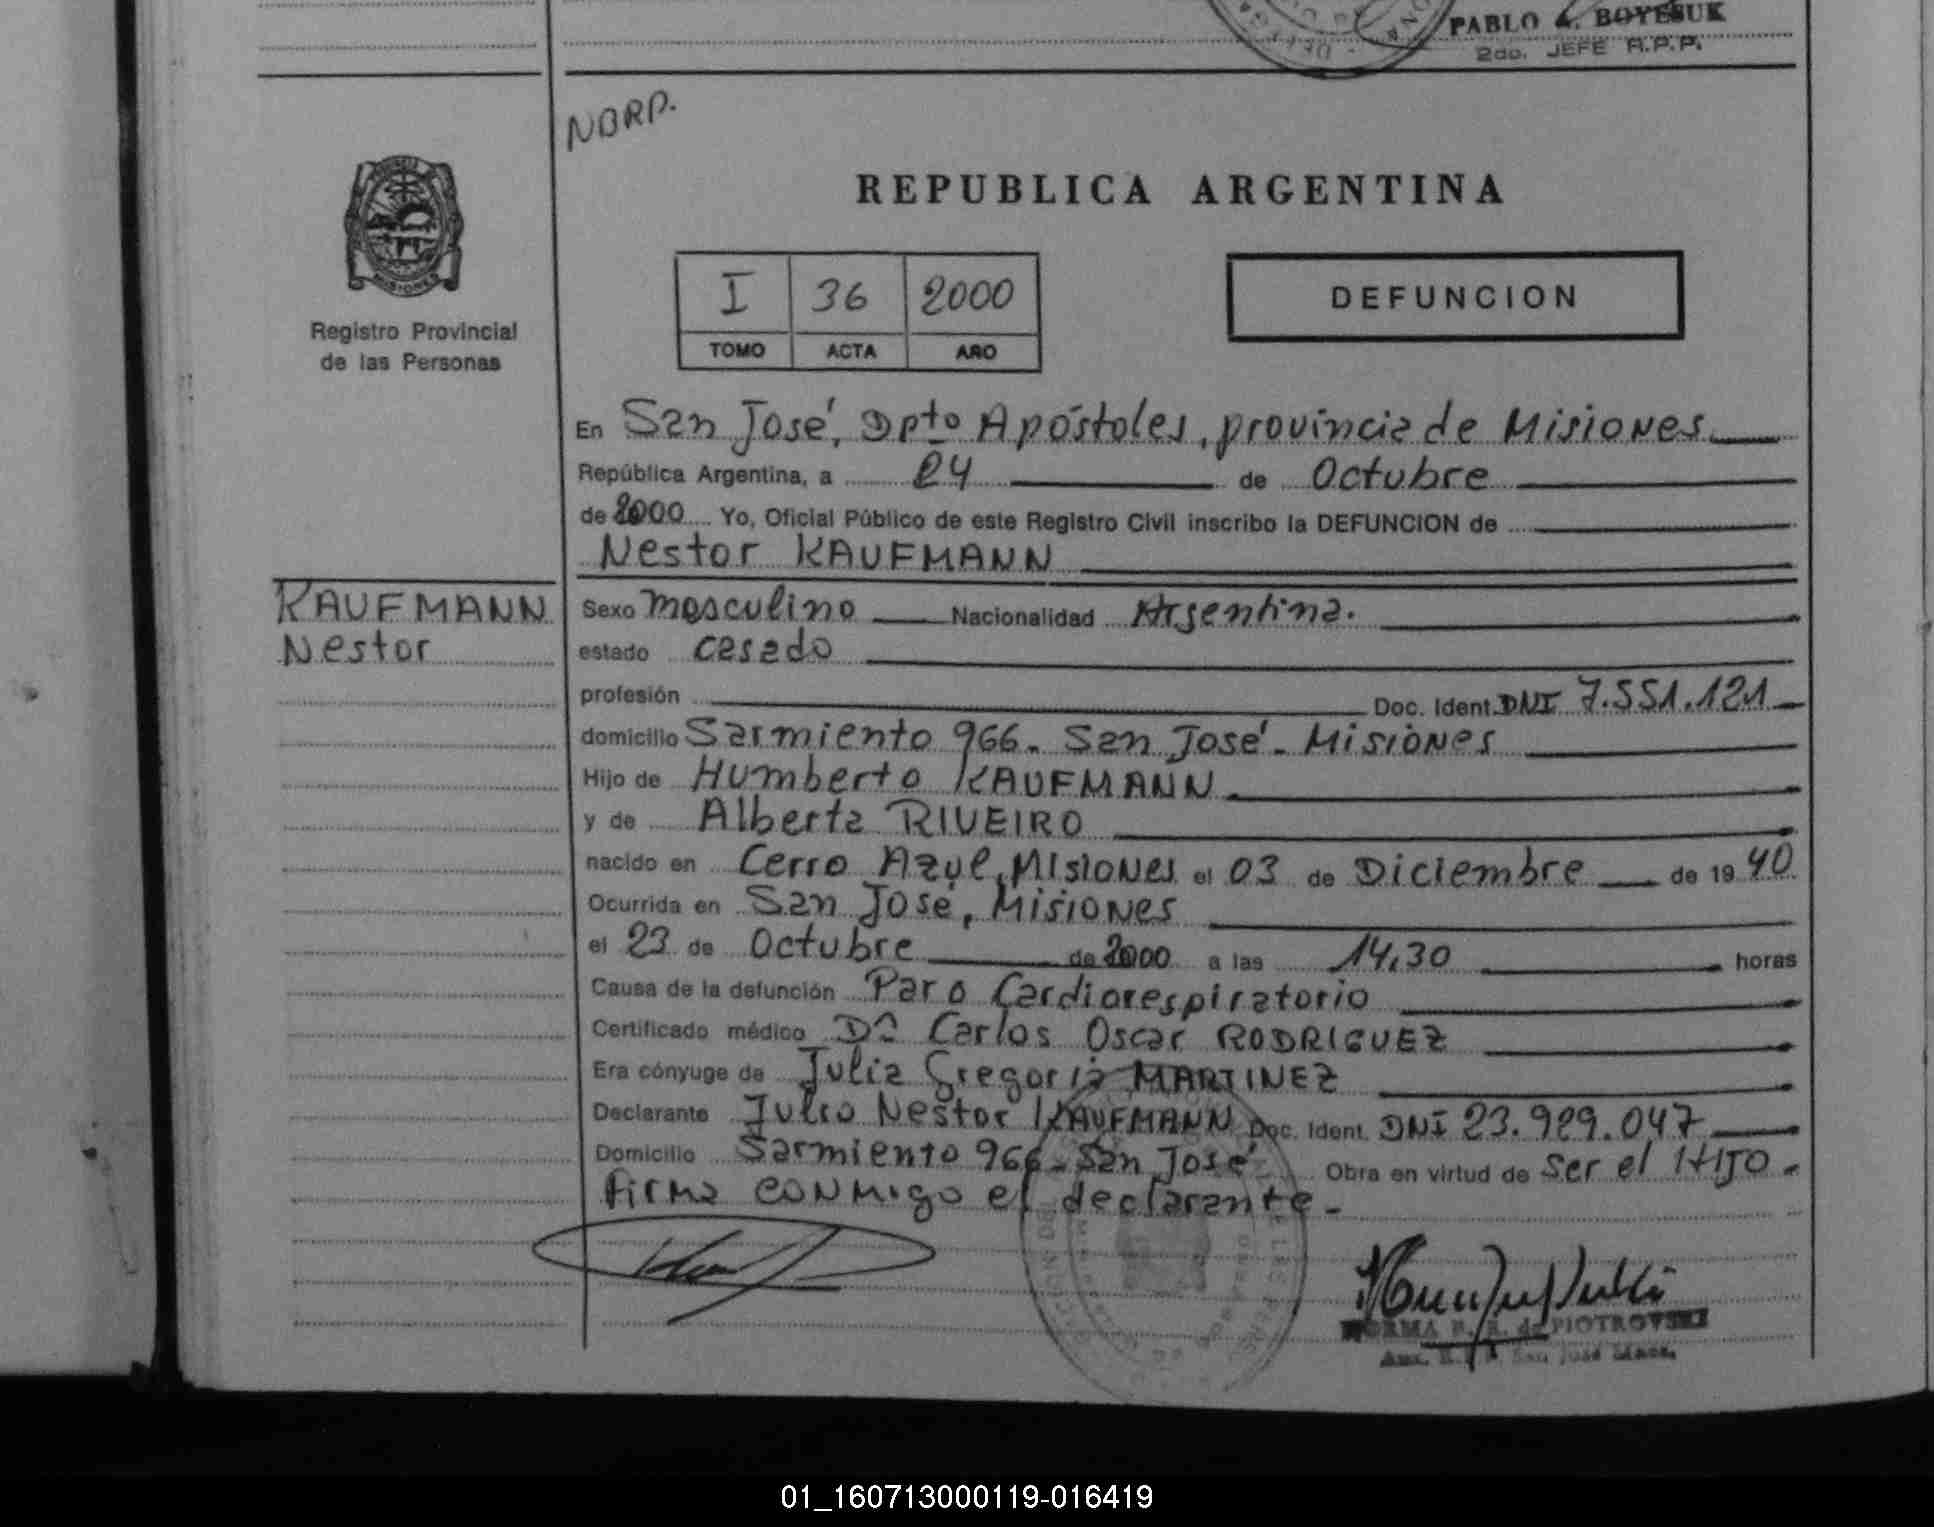 PABLO A. BOYESUK
2do. JEFE R.P.P.
NBRP.
REPUBLICA ARGENTINA
MISIONES
Registro Provincial
de las Personas
I 36 2000
TOMO ACTA AÑO
DEFUNCION
En San José, Dpto Apóstoles, provincia de Misiones
República Argentina, a 24 de Octubre
de 2000 Yo, Oficial Público de este Registro Civil inscribo la DEFUNCION de
Nestor KAUFMANN
KAUFMANN
Nestor
Sexo masculino Nacionalidad Argentina.
estado casado
profesión Doc. Ident. DNI 7.551.121
domicilio Sarmiento 966. San José - Misiones
Hijo de Humberto KAUFMANN
y de Alberta RIVEIRO
nacido en Cerro Azul, Misiones el 03 de Diciembre de 1940
Ocurrida en San José, Misiones
el 23 de Octubre de 2000 a las 14,30 horas
Causa de la defunción Paro Cardiorespiratorio
Certificado médico Dr Carlos Oscar RODRIGUEZ
Era cónyuge de Julia Gregoria MARTINEZ
Declarante Julio Nestor KAUFMANN Doc. Ident. DNI 23.929.047
Domicilio Sarmiento 966 - San José Obra en virtud de Ser el HIJO -
firma conmigo el declarante -
NORMA de PIOTROVSKI
Aux. San José Mnes.
01_160713000119-016419